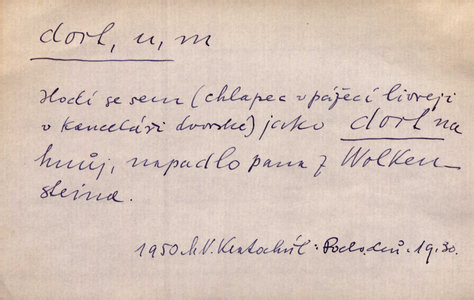 dort, u, m
Hodí se sem (chlapec v pážecí livreji
v kanceláři dvorské) jako dort na
hnůj, napadlo pana z Wolken-
steina.
1950 M.V. Kratochvíl: Podob. 19.30.